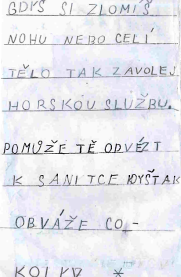 GDYŠ SI ZLOMIŠ
NOHU NEBO CELÍ
TĚLO TAK ZAVOLEJ
HORSKOU SLUŽBU.
POMŮŽE TĚ ODVÉZT
K SANITCE
OBVÁŽE CO-
KOLYV *